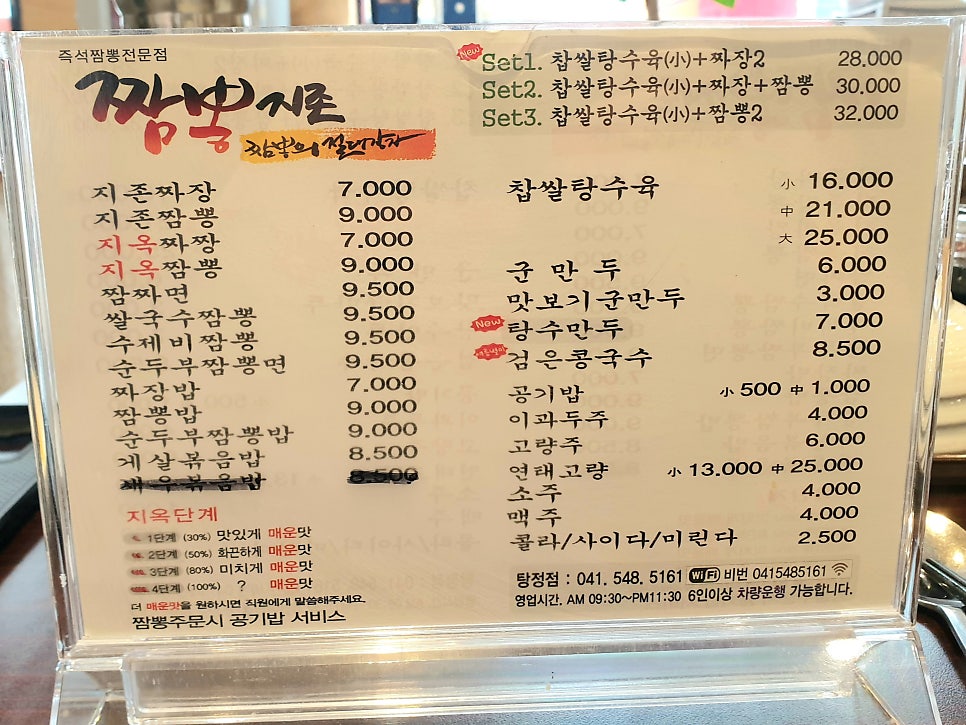 즉석짬뽕전문점
짬뽕지존
짬뽕의 절대강자
New Set1. 찹쌀탕수육(小)+짜장2 28.000
Set2. 찹쌀탕수육(小)+짜장+짬뽕 30.000
Set3. 찹쌀탕수육(小)+짬뽕2 32.000
지존짜장 7.000
지존짬뽕 9.000
지옥짜장 7.000
지옥짬뽕 9.000
짬짜면 9.500
쌀국수짬뽕 9.500
수제비짬뽕 9.500
순두부짬뽕면 9.500
짜장밥 7.000
짬뽕밥 9.000
순두부짬뽕밥 9.000
게살볶음밥 8.500
새우볶음밥 8.500
지옥단계
1단계 (30%) 맛있게 매운맛
2단계 (50%) 화끈하게 매운맛
3단계 (80%) 미치게 매운맛
4단계 (100%) ? 매운맛
더 매운맛을 원하시면 직원에게 말씀해주세요.
짬뽕주문시 공기밥 서비스
찹쌀탕수육 小 16.000
中 21.000
大 25.000
군만두 6.000
맛보기군만두 3.000
New 탕수만두 7.000
검은콩국수 8.500
공기밥 小 500 中 1.000
이과두주 4.000
고량주 6.000
연태고량 小 13.000 中 25.000
소주 4.000
맥주 4.000
콜라/사이다/미린다 2.500
탕정점 : 041. 548. 5161 WiFi 비번 0415485161
영업시간. AM 09:30~PM11:30 6인이상 차량운행 가능합니다.